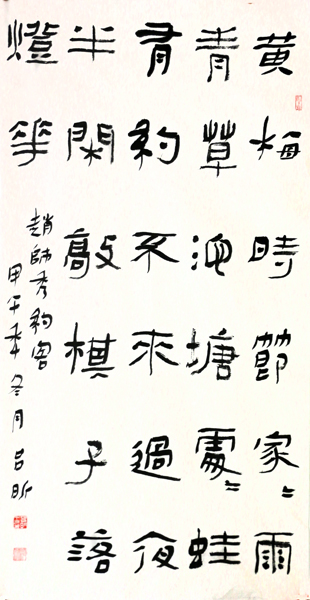 黄梅時節家〻雨
青草池塘處〻蛙
有約不来過夜
半閑敲棋子落
燈花
趙師秀約客
甲午年冬月吕昕